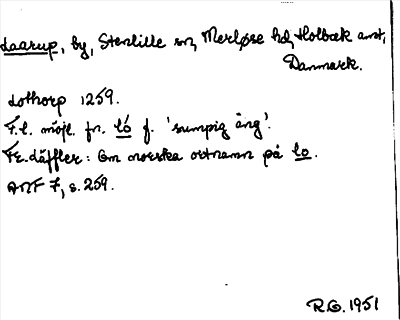 Laarup, by, Stenlille sn, Merløse hd, Holbæk amt,
Danmark.
Lothorp 1259.
F.l. möjl. fn. ló f. 'sumpig äng'.
Fr. Läffler: Om norska ortnamn på lo.
ANF 7, s. 259.
R.G. 1951